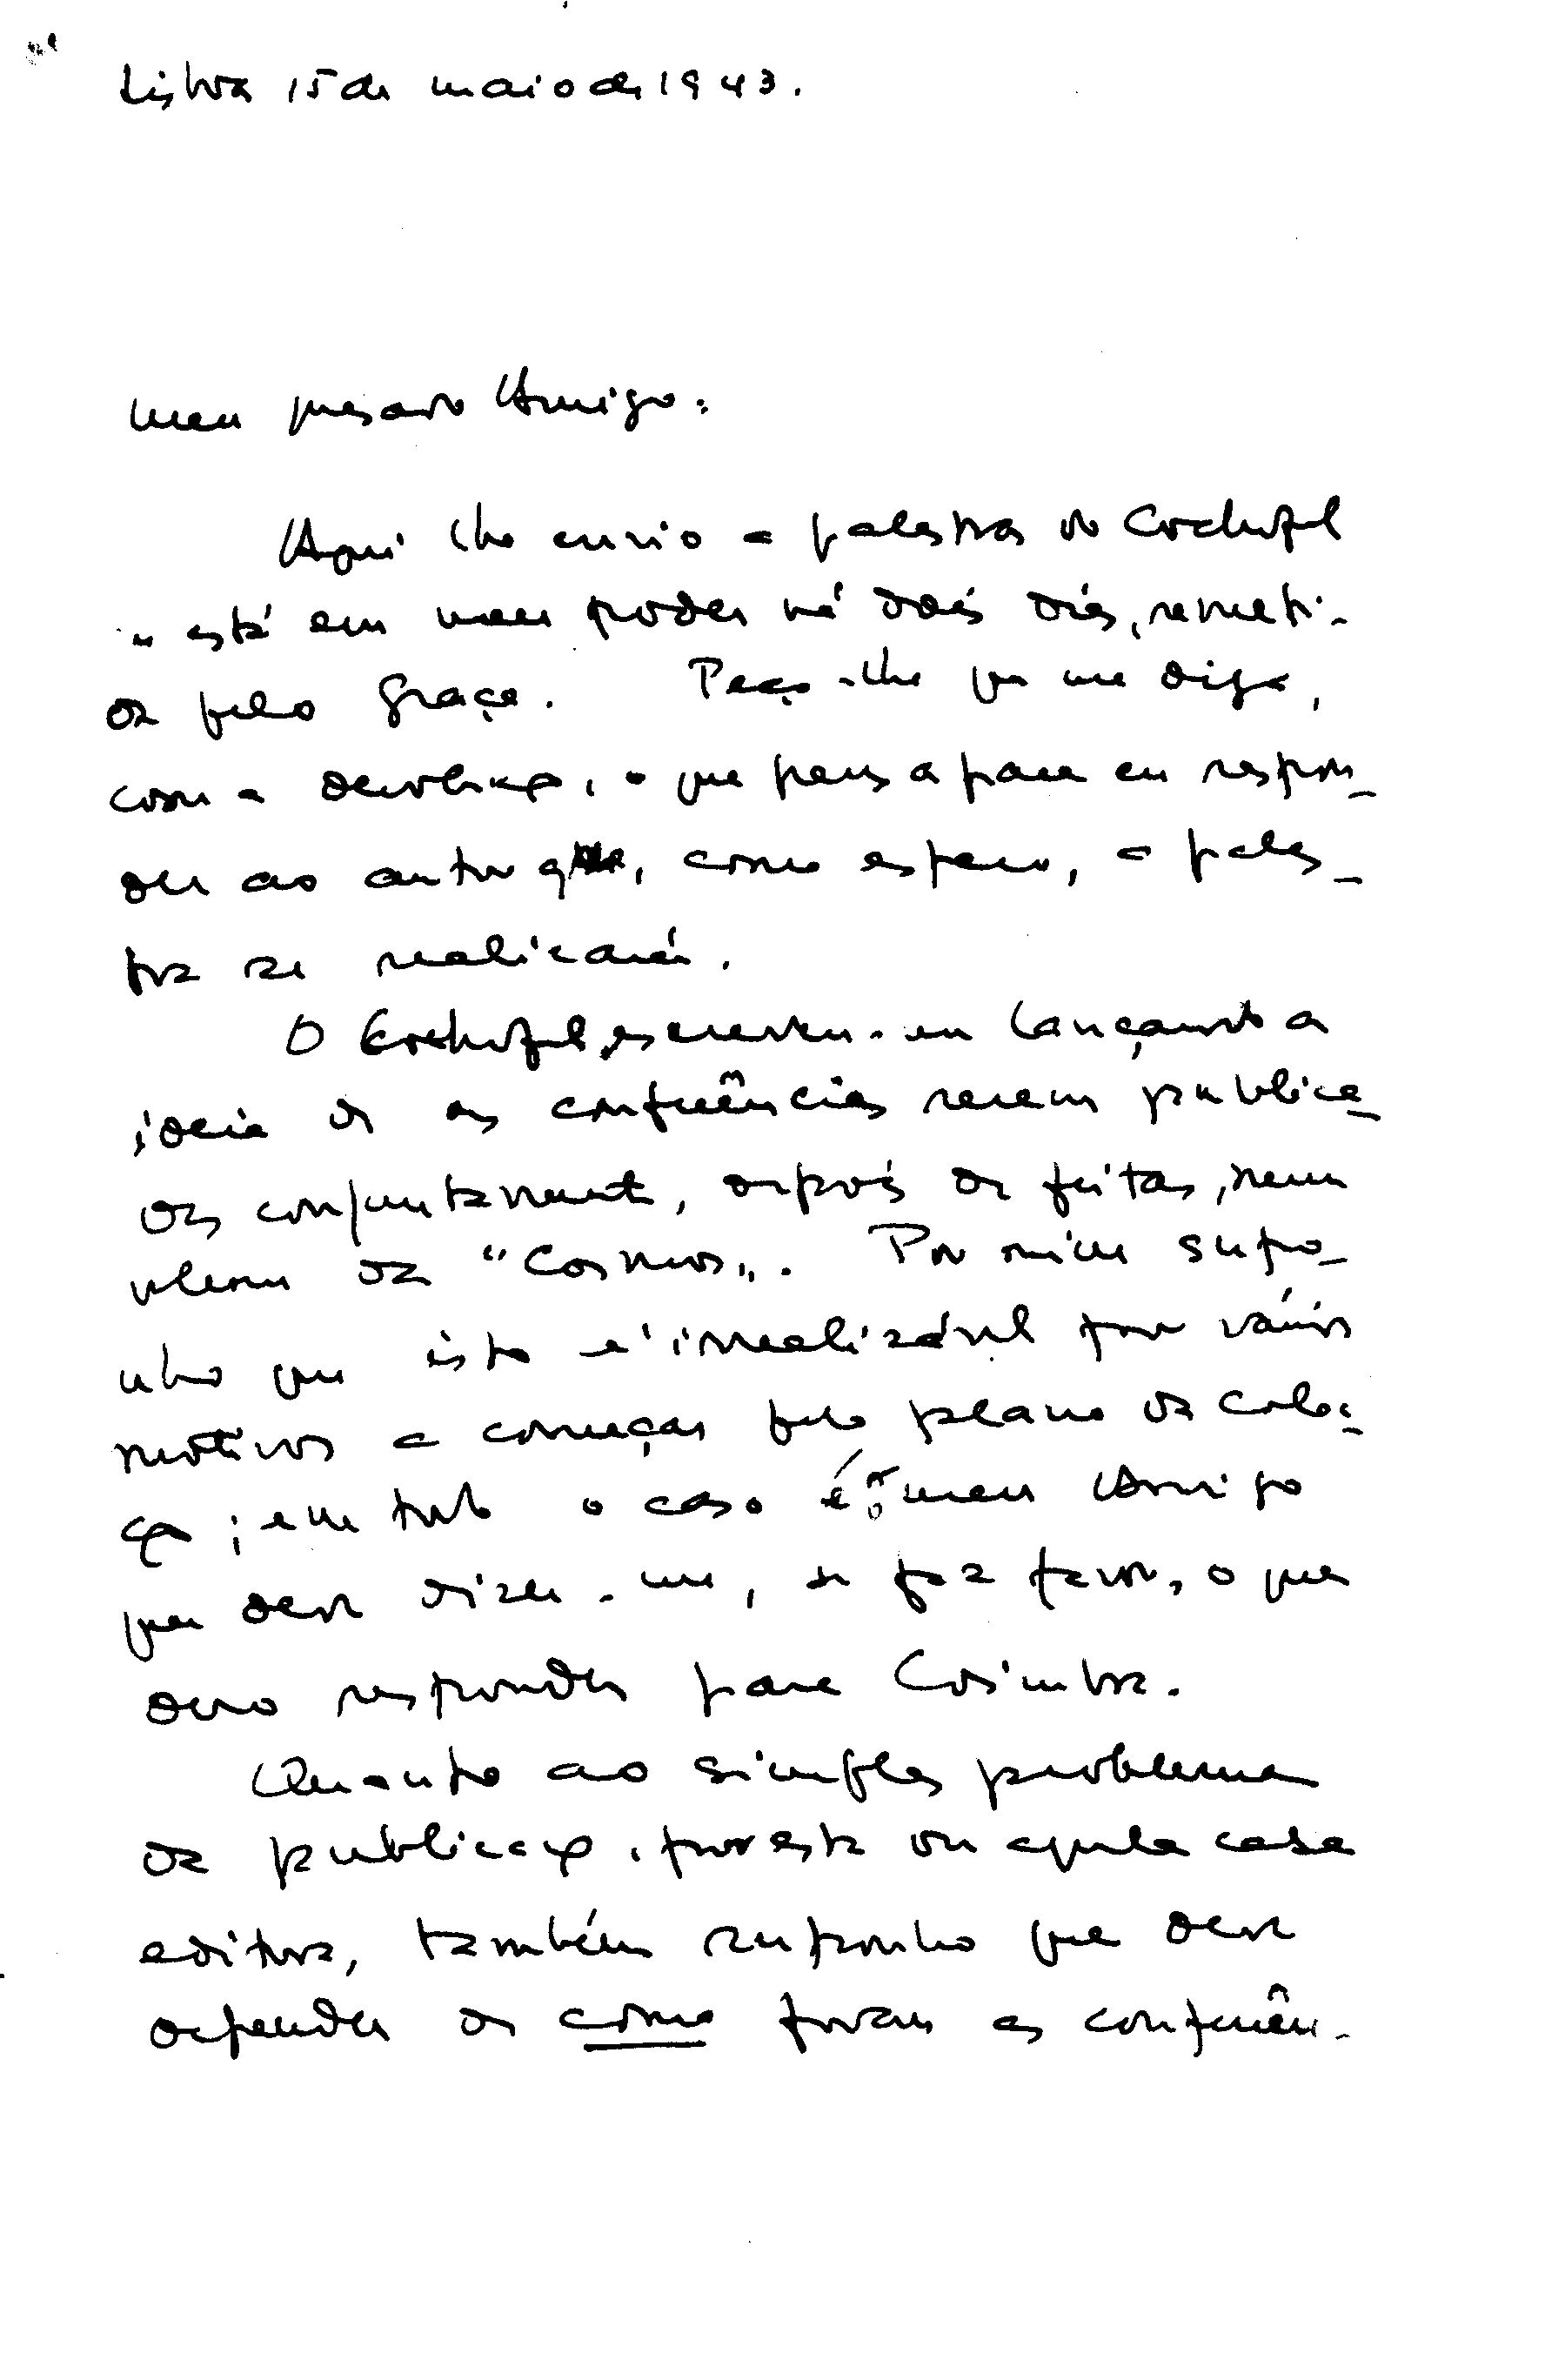 Lisboa 15 de maio de 1943.
Meu presado Amigo:
Aqui lhe envio a palestra do Cochofel
está em meu poder há dois dias, remeti-
da pelo Graça. Peço-lhe que me diga,
com a devolução, o que pensa para eu respon-
der ao autor que, como espero, a pales-
tra se realizará.
O Cochofel escreveu-me lançando a
ideia de as conferências serem publica-
das conjuntamente, depois de feitas, num
volume da "Cosmos". Por mim supo-
nho que isto é irrealizável por vários
motivos a começar pelo plano da colec-
ção; em todo o caso é o meu Amigo
que deve dizer-me, se faz favor, o que
devo responder para Coimbra.
Quanto ao simples problema
da publicação, por esta ou aquela casa
editora, também suponho que deve
depender de como forem as conferên-